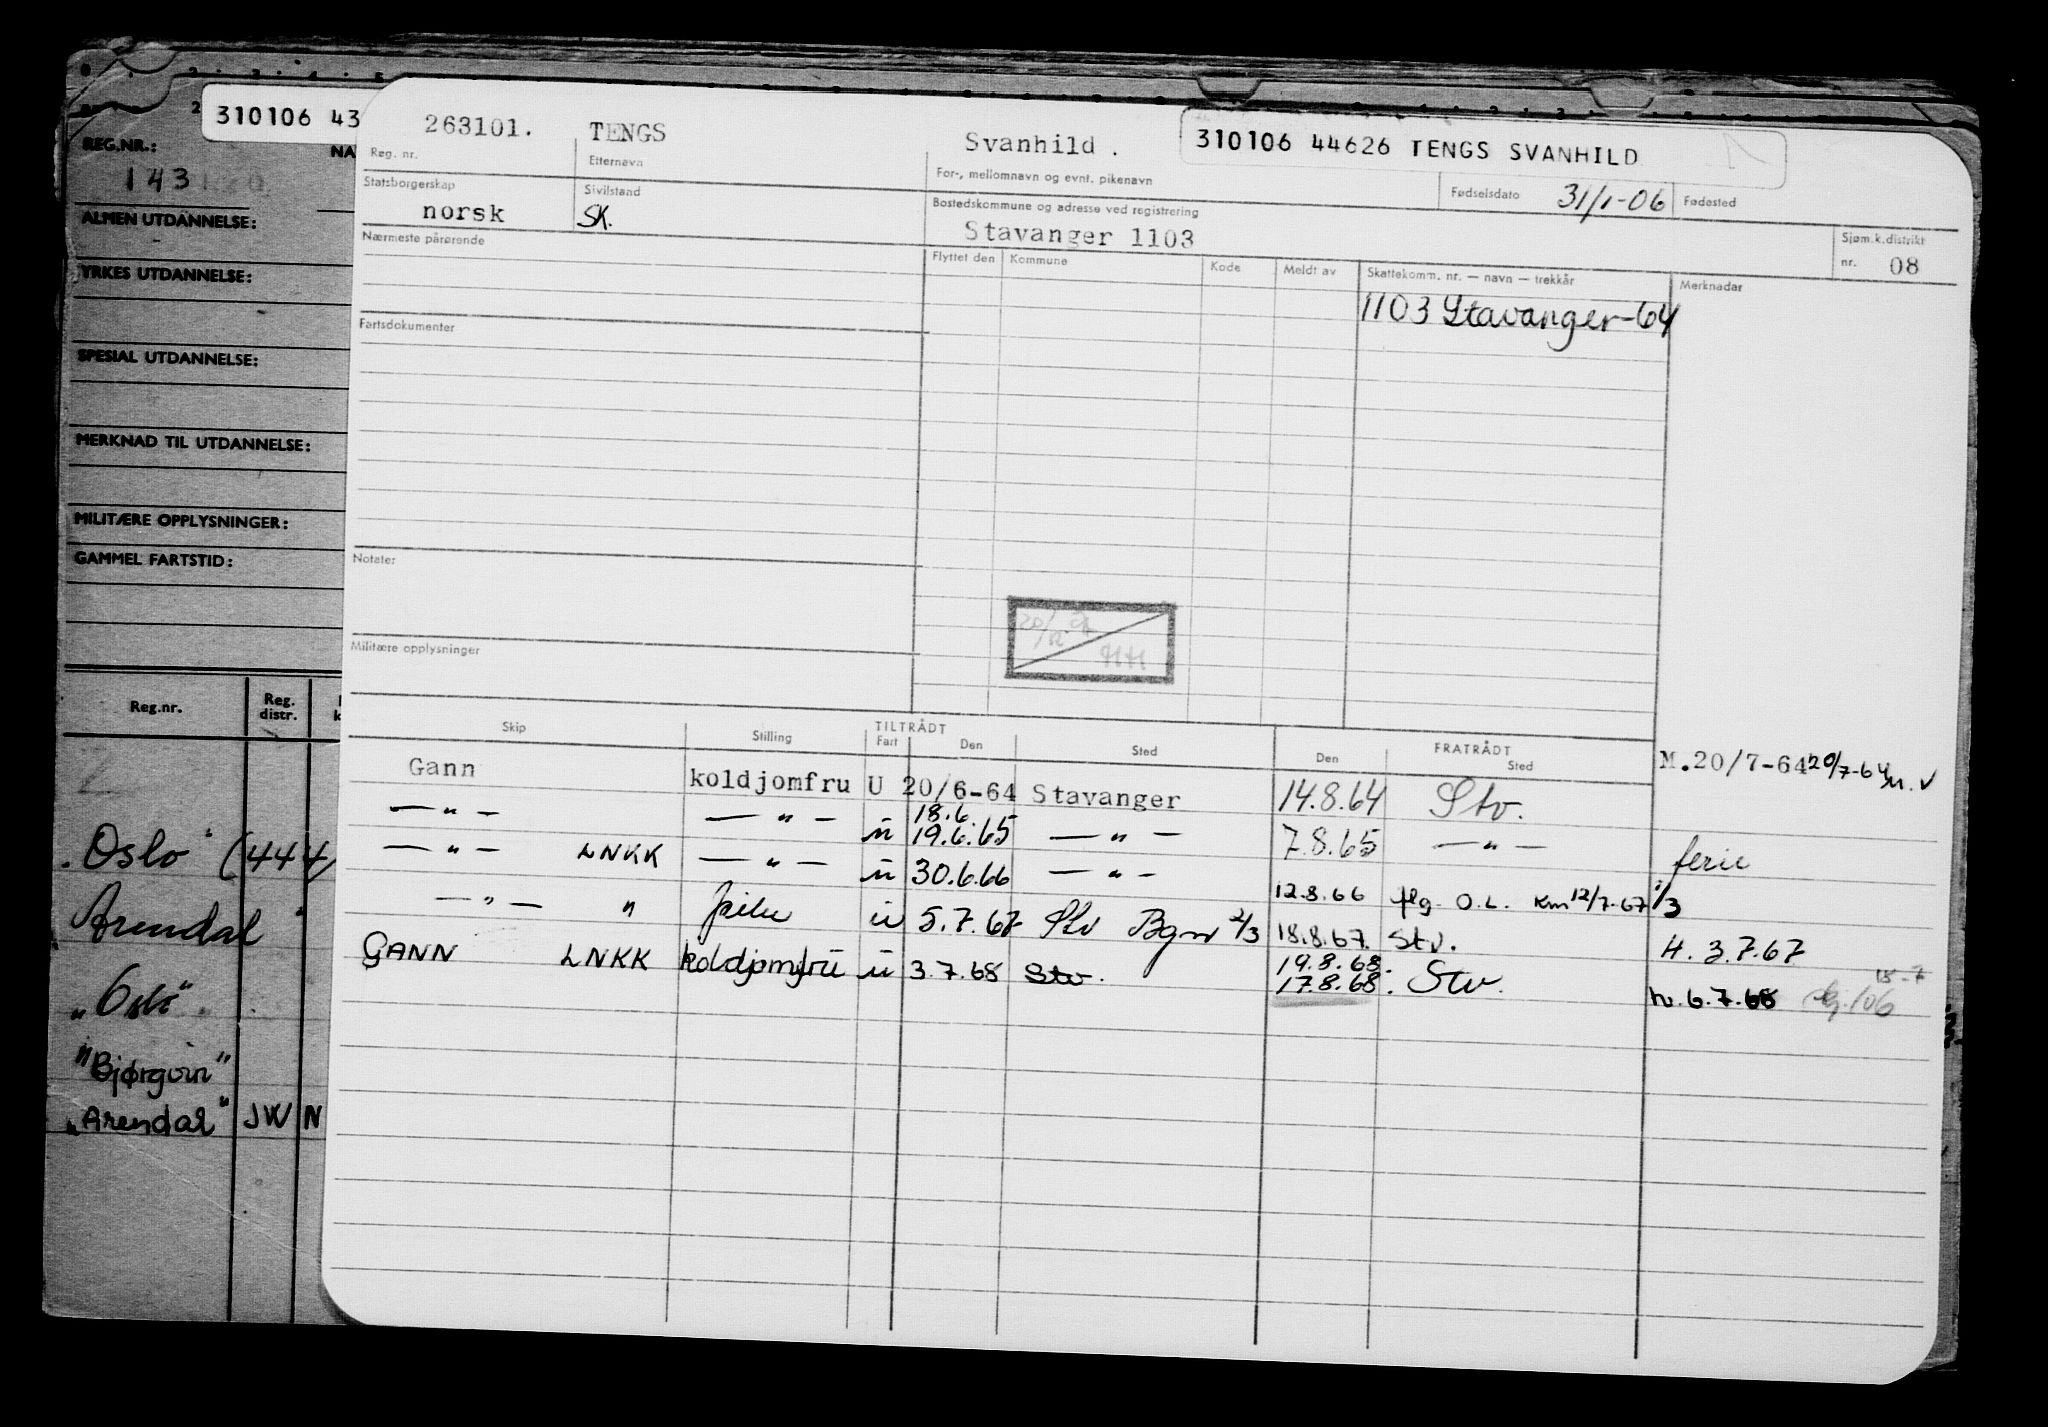 310106 43
REG.NR.:
NA
143
ALMEN UTDANNELSE:
YRKES UTDANNELSE:
SPESIAL UTDANNELSE:
MERKNAD TIL UTDANNELSE:
MILITÆRE OPPLYSNINGER:
GAMMEL FARTSTID:
Reg.nr. Reg. distr.
Oslo (444
Arendal
"Oslo"
"Bjørgvin"
"Arendal" JW N
263101. TENGS Svanhild . 310106 44626 TENGS SVANHILD
Reg. nr. Etternavn For-, mellomnavn og evnt. pikenavn Fødselsdato 31/1-06 Fødested
Statsborgerskap Sivilstand Bostedskommune og adresse ved registrering
norsk SK. Stavanger 1103 Sjøm.k.distrikt nr. 08
Nærmeste pårørende Flyttet den Kommune Kode Meldt av Skattekomm. nr. — navn — trekkår Merknader
1103 Stavanger-64
Fartsdokumenter
Notater
Militære opplysninger
Skip Stilling TILTRÅDT FRATRÅDT
Fart Den Sted Den Sted
Gann koldjomfru U 20/6-64 Stavanger 14.8.64 Stv. M.20/7-64 20/7-64
— " — — " — ü 18.6. 19.6.65 — " — 7.8.65 — " — ferie
— " — LNKK — " — ü 30.6.66 — " — 12.8.66 flg. O.L. Km 12/7-67 1/3
— " — " ü 5.7.67 Stv 2/3 18.8.67. Stv. H. 3.7.67
GANN LNKK koldjomfru ü 3.7.68 Stv. 19.8.68. 17.8.68. Stv. h. 6.7.68 18-7